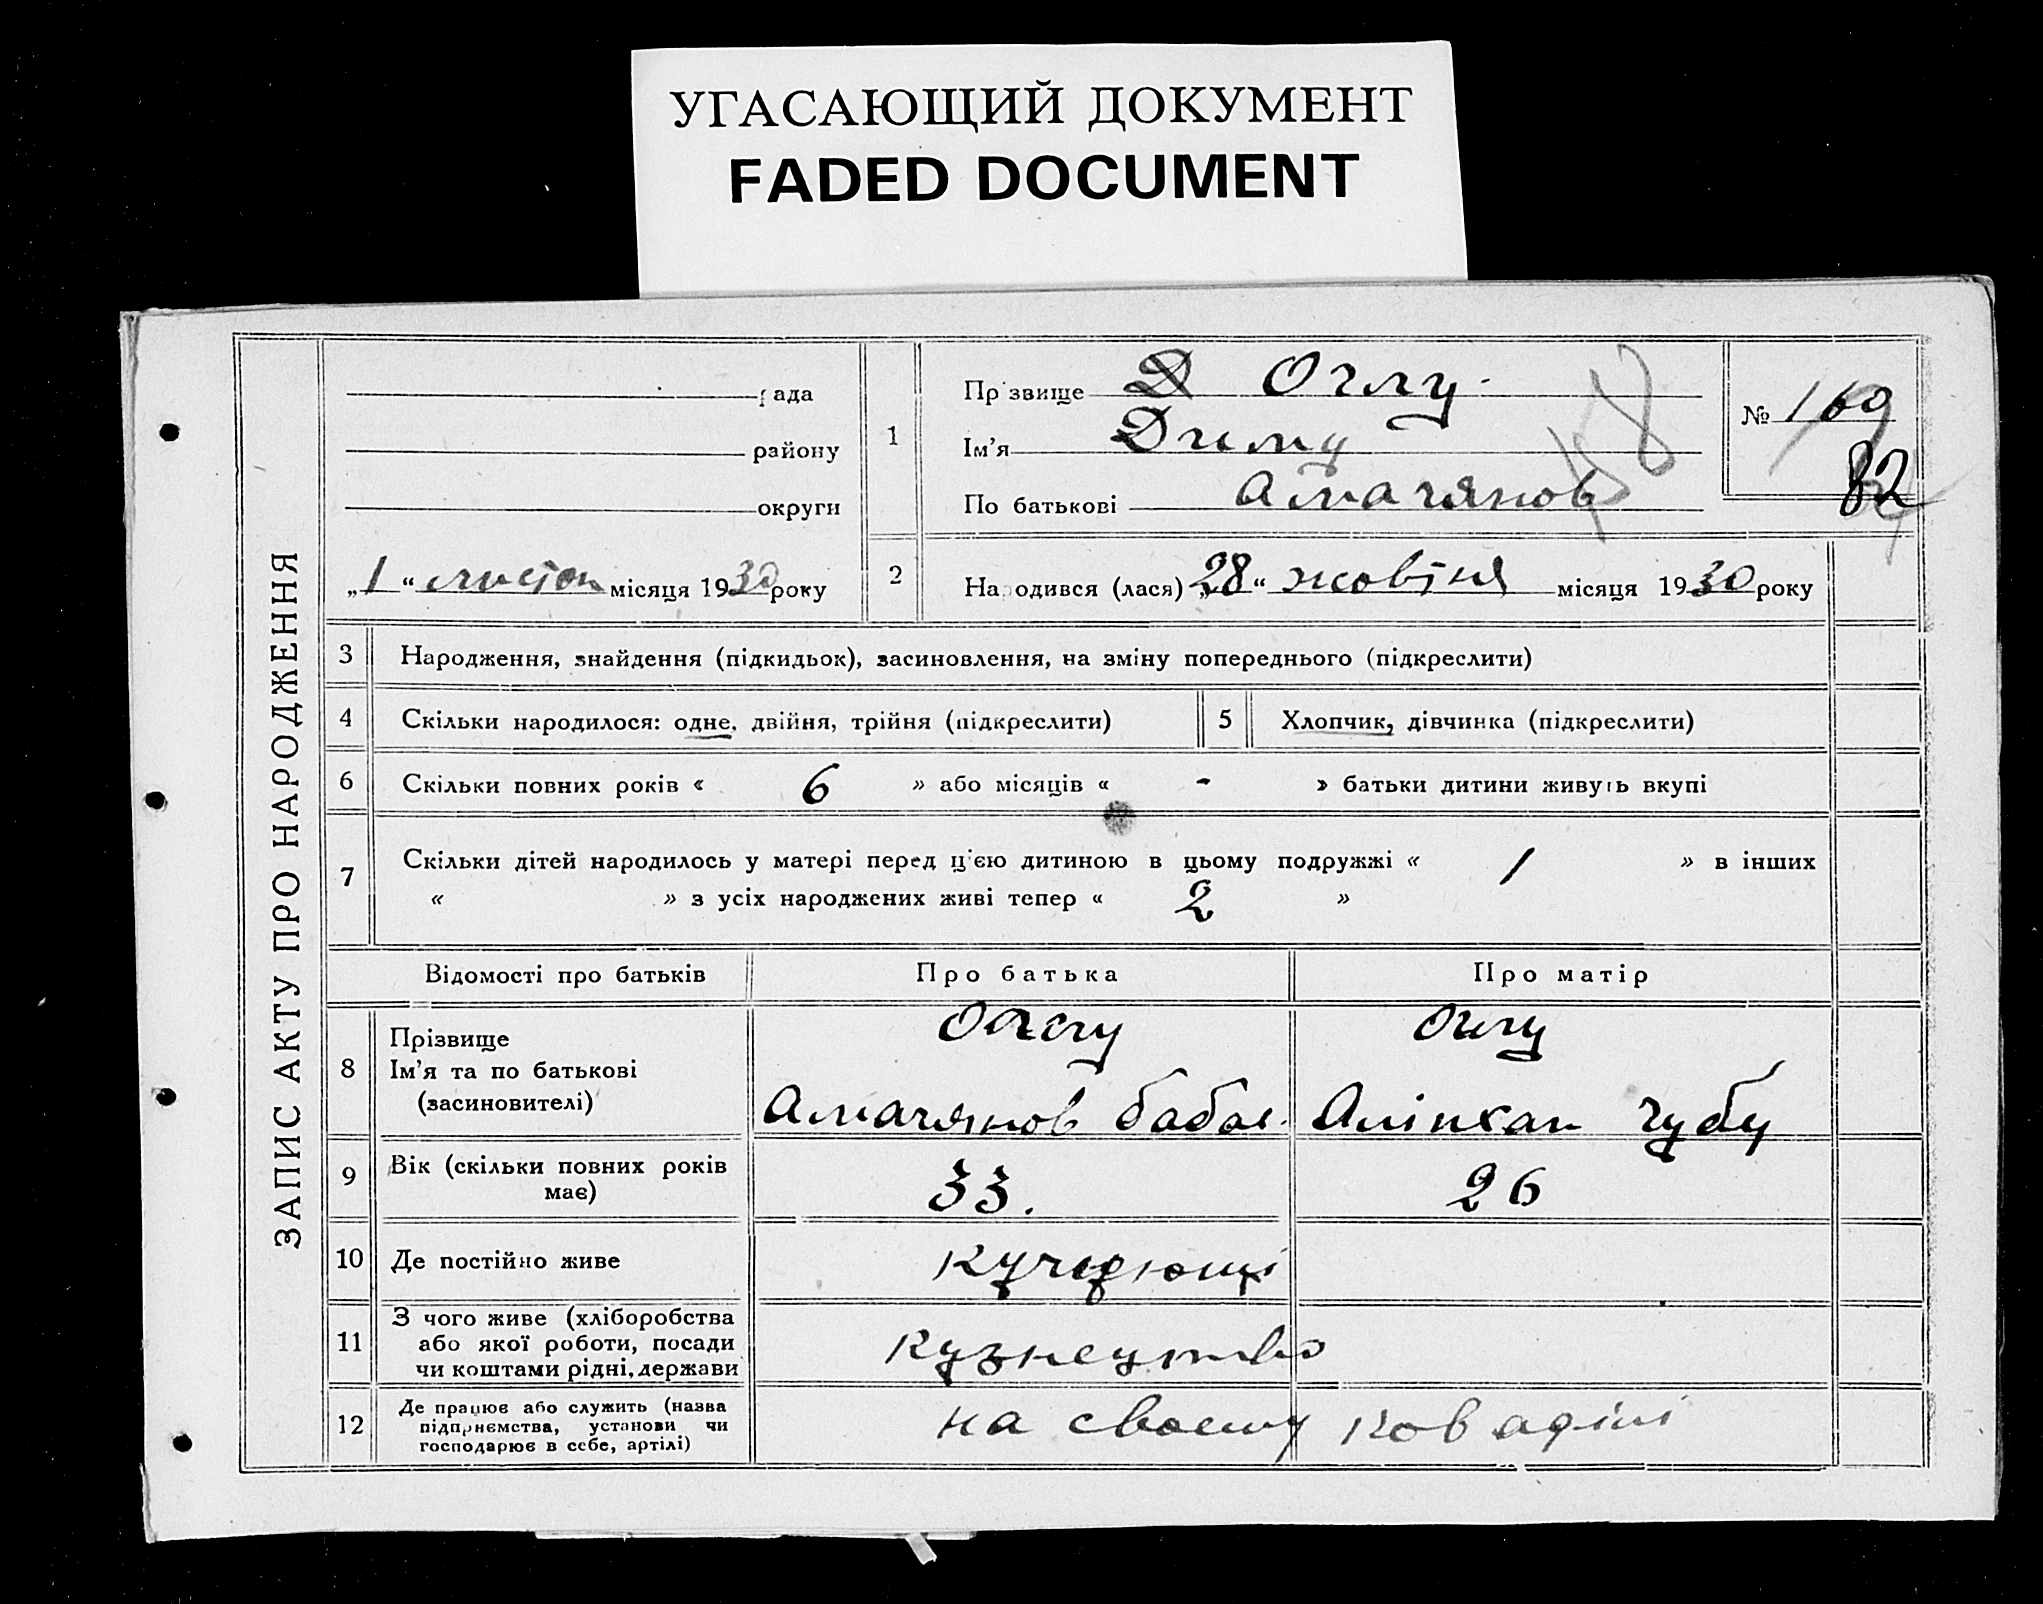 УГАСАЮЩИЙ ДОКУМЕНТ
FADED DOCUMENT
ЗАПИС АКТУ ПРО НАРОДЖЕННЯ
рада
району
округи
„1“ листоп місяця 1930 року
1
Прізвище Д Оглу
Ім'я
По батькові
№ 160
82
2
Народився (лася) „28“ жовтня місяця 1930 року
3 Народження, знайдення (підкидьок), засиновлення, на зміну попереднього (підкреслити)
4 Скільки народилося: одне, двійня, трійня (підкреслити)
5 Хлопчик, дівчинка (підкреслити)
6 Скільки повних років « 6 » або місяців « - » батьки дитини живуть вкупі
7 Скільки дітей народилось у матері перед ц'єю дитиною в цьому подружжі « 1 » в інших
« » з усіх народжених живі тепер « 2 »
Відомості про батьків Про батька Про матір
8 Прізвище Оглу Оглу
Ім'я та по батькові
(засиновителі)
9 Вік (скільки повних років має) 33. 26
10 Де постійно живе
11 З чого живе (хліборобства
або якої роботи, посади
чи коштами рідні, держави
кузнецтво
12 Де працює або служить (назва
підприємства, установи чи
господарює в себе, артілі)
на своему